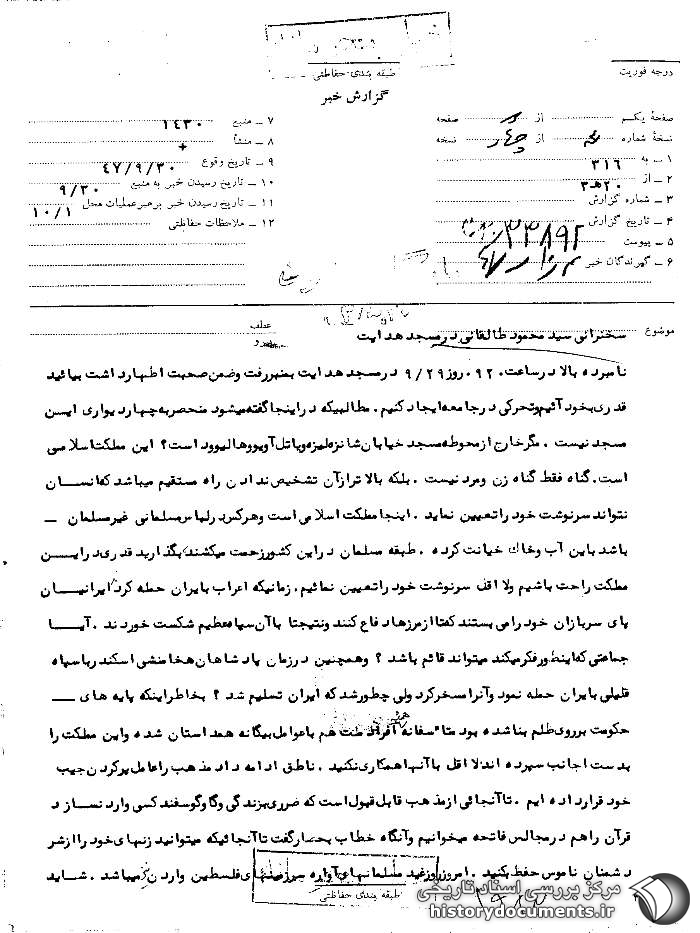 درجه فوریت
طبقه بندی حفاظتی
گزارش خبر
صفحهٔ یکم از صفحه
نسخهٔ شماره از چهار نسخه
۱ ـ به ۳۱۶
۲ ـ از ۲۰هـ۳
۳ ـ شماره گزارش
۴ ـ تاریخ گزارش
۵ ـ پیوست
۶ ـ گیرندگان خبر
۷ ـ منبع ۱٤۳۰
۸ ـ منشأ +
۹ ـ تاریخ وقوع ٤۷/۹/۳۰
۱۰ ـ تاریخ رسیدن خبر به منبع ۹/۳۰
۱۱ ـ تاریخ رسیدن خبر برهبرعملیات محل ۱۰/۱
۱۲ ـ ملاحظات حفاظتی
موضوع سخنرانی سید محمود طالقانی در مسجد هدایت
عطف
نامبرده بالا در ساعت ۰۹۲ روز ۹/۲۹ در مسجد هدایت بمنبر رفت و ضمن صحبت اظهار داشت بیائید
قدری بخود آئیم و تحرکی در جامعه ایجاد کنیم . مطالبیکه در اینجا گفته میشود منحصر به چهار دیواری ایـن
مسجد نیست . مگر خارج از محوطه مسجد خیابان شانزه لیزه و یا تل آویو و هالیوود است ؟ این مملکت اسلامی
است . گناه فقط گناه زن و مرد نیست . بلکه بالا تر از آن تشخیص ندادن راه مستقیم میباشد که انسـان
نتواند سرنوشت خود را تعیین نماید . اینجا مملکت اسلامی است و هر کس در لباس مسلمانی غیر مسلمان ــ
باشد باین آب و خاک خیانت کرده . طبقه مسلمان در این کشور زحمت میکشند بگذارید قدری در ایـن
مملکت راحت باشیم و لا اقل سرنوشت خود را تعیین نمائیم . زمانیکه اعراب بایران حمله کرد ایرانیـان
پای سربازان خود را می بستند که تا از مرزها دفاع کنند و نتیجتا با آن سپاه عظیم شکست خوردند . آیـا
جماعتی که اینطور فکر میکند میتواند قائم باشد ؟ و همچنین در زمان پادشاهان هخامنشی اسکندر با سپاه
قلیلی بایران حمله نمود و آنرا مسخر کرد ولی چطور شد که ایران تسلیم شد ؟ بخاطر اینکه پایه های ــ
حکومت بر روی ظلم بنا شده بود متاسفانه افراد ملت هم با عوامل بیگانه همداستان شده و این مملکت را
بدست اجانب سپرده اند لا اقل با آنها همکاری نکنید . ناطق ادامه داد مذهب را عامل پر کردن جیب
خود قرار داده ایم . تا آنجائی از مذهب قابل قبول است که ضرری بزندگی و گاو و گوسفند کسی وارد نسازد
قرآن را هم در مجالس فاتحه میخوانیم و آنگاه خطاب بحضار گفت تا آنجائیکه میتوانید زنهای خود را از شر
دشمنان ناموس حفظ کنید . امروز روز عید مسلمانهای آواره سرزمینهای فلسطین وارد نمیباشد . شاید
طبقه بندی حفاظتی
مرکز بررسی اسناد تاریخی
historydocuments.ir